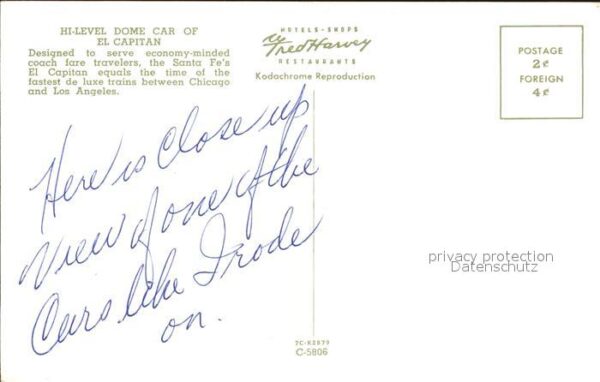 HI-LEVEL DOME CAR OF
EL CAPITAN
Designed to serve economy-minded
coach fare travelers, the Santa Fe's
El Capitan equals the time of the
fastest de luxe trains between Chicago
and Los Angeles.
HOTELS-SHOPS
Fred Harvey
RESTAURANTS
Kodachrome Reproduction
POSTAGE
2¢
FOREIGN
4¢
Here is Close up
View of one of the
Cars like I rode
on.
privacy protection
Datenschutz
7C-K2879
C-5806